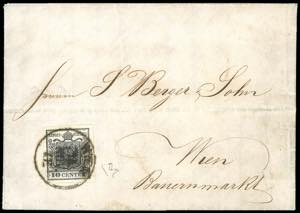 Herrn S Berger & Sohn
Wien
Bauernmarkt
10 CENTES